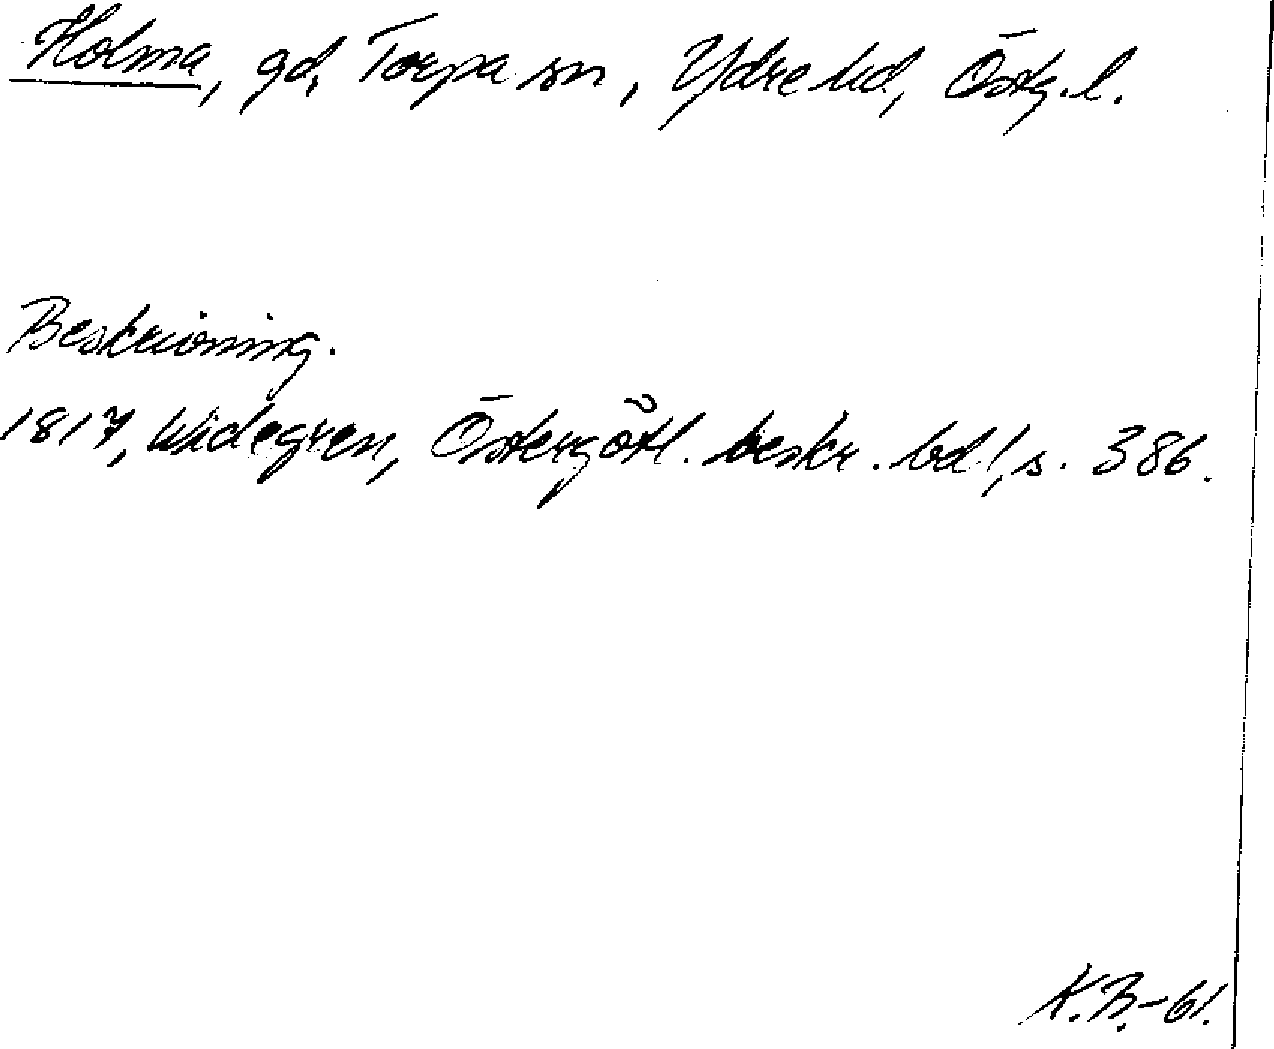 Holma, gd, Torpa sn, Ydre hd, Östg. l.
Beskrivning.
1817, Widegren, Östergötl. beskr. bd 1, s. 386.
K.B.-61.